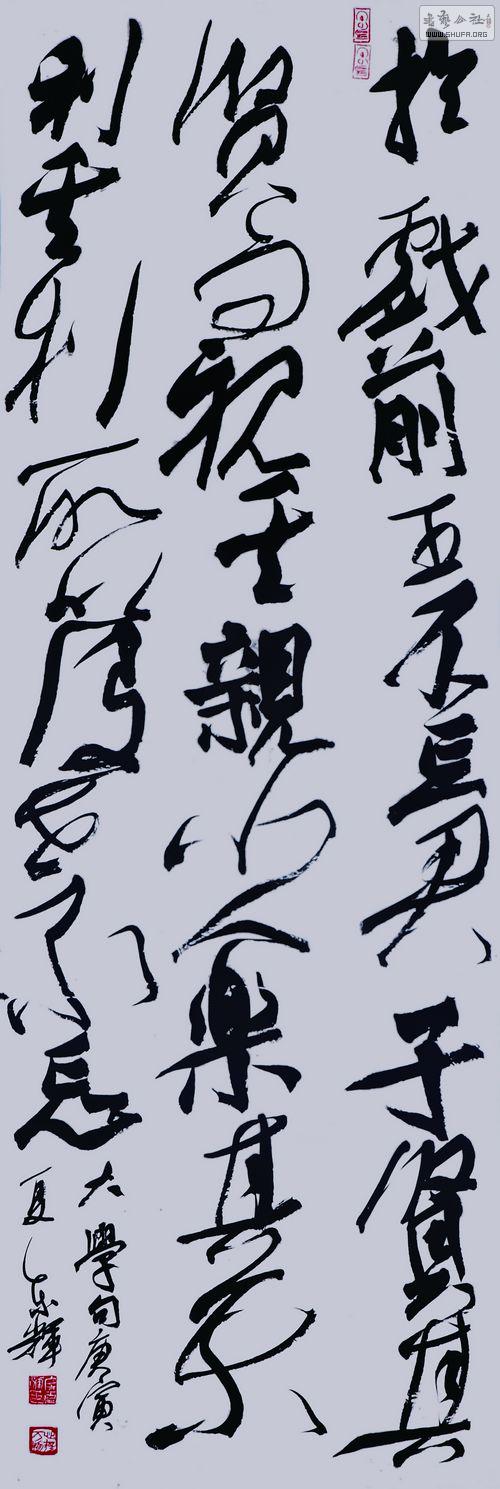 於戲前王不忘君子賢其
賢而親其親小人樂其樂
利其利所世不忘
大學句庚寅
夏東輝
书艺公社
WWW.SHUFA.ORG